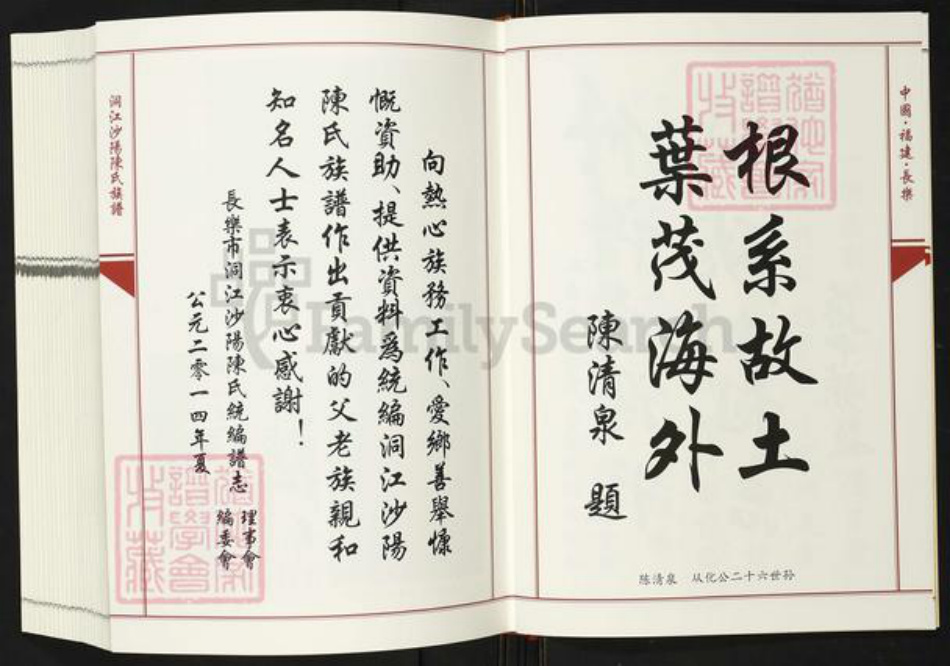 中國·福建·長樂
根系故土
葉茂海外
陳清泉 題
陈清泉 从化公二十六世孙
向熱心族務工作、愛鄉善舉慷
慨資助、提供資料爲統編洞江沙陽
陳氏族譜作出貢獻的父老族親和
知名人士表示衷心感謝！
長樂市洞江沙陽陳氏統編譜志
理事會
編委會
公元二零一四年夏
洞江沙陽陳氏族譜
FamilySearch